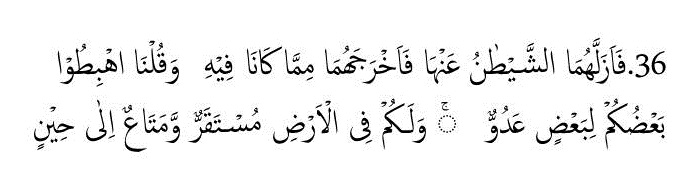 36.فَاَزَلَّهُمَا الشَّيْطٰنُ عَنْهَا فَاَخْرَجَهُمَا مِمَّا كَانَا فِيْهِ وَقُلْنَا اهْبِطُوْا
بَعْضُكُمْ لِبَعْضٍ عَدُوٌّ ۚ وَلَكُمْ فِى الْاَرْضِ مُسْتَقَرٌّ وَّمَتَاعٌ اِلٰى حِيْنٍ